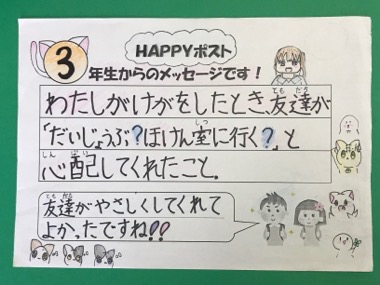 HAPPYポスト
3年生からのメッセージです！
わたしがけがをしたとき、友達が
「だいじょうぶ？ほけん室に行く？」と
心配してくれたこと。
友達がやさしくしてくれて
よかったですね!!